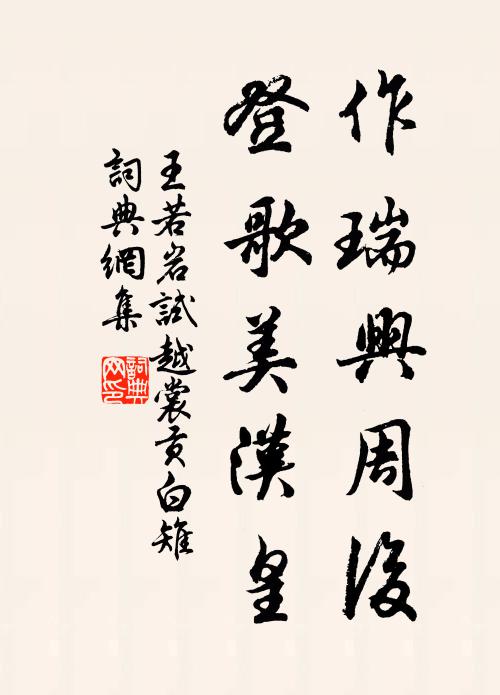 作瑞興周後
登歌美漢皇
王若岩試越裳貢白雉
詞典網集
詞典網印